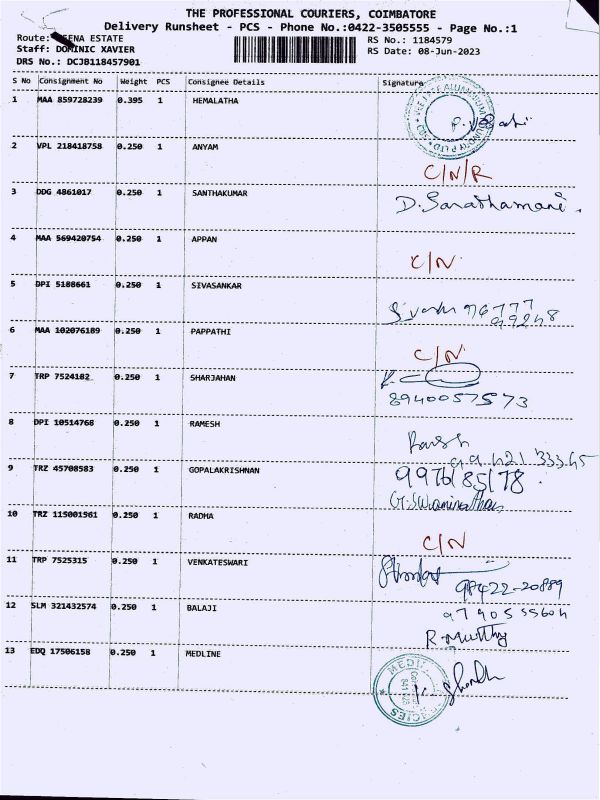 THE PROFESSIONAL COURIERS, COIMBATORE
Delivery Runsheet - PCS - Phone No.:0422-3505555 - Page No.:1
Route: ENA ESTATE
RS No.: 1184579
Staff: DOMINIC XAVIER
RS Date: 08-Jun-2023
DRS No.: DCJB118457901
S No Consignment No Weight PCS Consignee Details Signature
1 MAA 859728239 0.395 1 HEMALATHA
2 VPL 218418758 0.250 1 ANYAM
C/N/R
3 DDG 4861017 0.250 1 SANTHAKUMAR
D. Sarathamani.
4 MAA 569420754 0.250 1 APPAN
C/N
5 DPI 5188661 0.250 1 SIVASANKAR
96777
99248
6 MAA 102076189 0.250 1 PAPPATHI
C/N
7 TRP 7524182 0.250 1 SHARJAHAN
8940057573
8 DPI 10514768 0.250 1 RAMESH
Ramesh
99421 33345
9 TRZ 45708583 0.250 1 GOPALAKRISHNAN
9976185178.
G. Swaminathan
10 TRZ 115001561 0.250 1 RADHA
C/N
11 TRP 7525315 0.250 1 VENKATESWARI
98422-20889
12 SLM 321432574 0.250 1 BALAJI
9790555604
R. Murthy
13 EDQ 17506158 0.250 1 MEDLINE